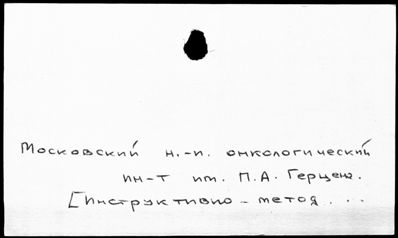 Московский н.-и. онкологический
ин-т им. П.А. Герцена.
[Инструктивно-метод...